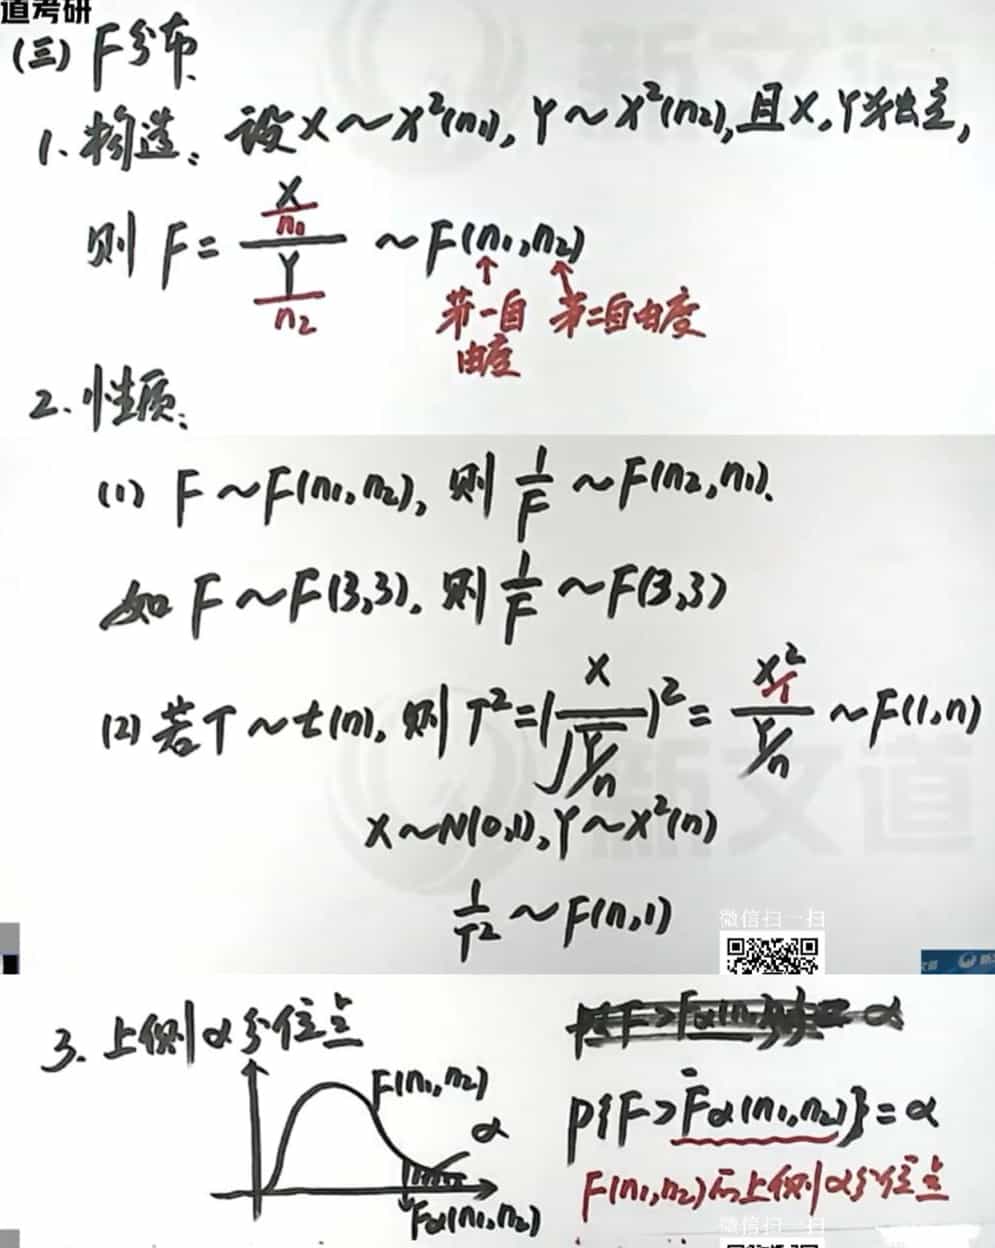 道考研
(三) F分布
1. 构造: 设X~χ²(n₁), Y~χ²(n₂), 且X, Y独立,
则 F = (X/n₁)/(Y/n₂) ~ F(n₁,n₂)
第一自由度 第二自由度
2. 性质:
(1) F~F(n₁,n₂), 则 1/F ~F(n₂,n₁).
如 F~F(3,3). 则 1/F ~F(3,3)
(2) 若T~t(n), 则 T²=(X/√(Y/n))² = (X²/1)/(Y/n) ~F(1,n)
X~N(0,1), Y~χ²(n)
1/T² ~F(n,1)
微信扫一扫
3. 上侧α分位点
F(n₁,n₂)
α
Fα(n₁,n₂)
P{F>Fα(n₁,n₂)}=α
F(n₁,n₂)的上侧α分位点
微信扫一扫
新文道